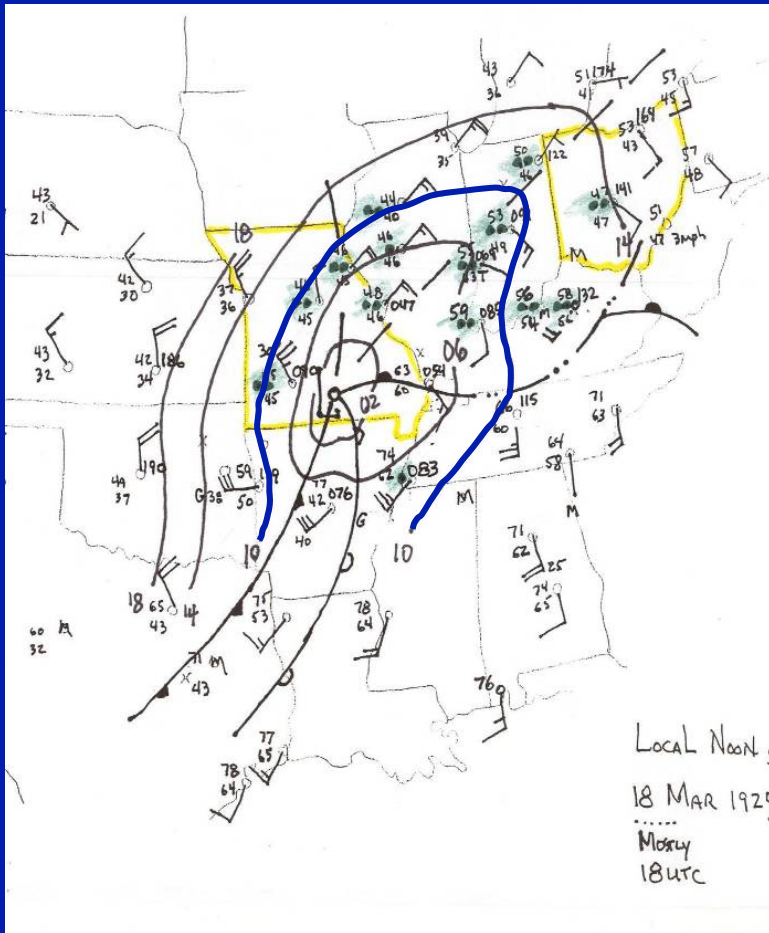 43
36
51 174
41
53
45
39
35
50
46
122
53 169
43
57
48
43
21
44
40
47 141
47
51
47 3mph
18
53
49
14
M
42
30
37
36
46
45
46
46
45
48
46
047
59
085
56
54
M
58 132
56
43
32
42 186
34
45
63
60
054
06
02
115
60
71
63
190
49
37
59
50
G38
74
62
083
64
58
77
42 076
40
G
M
M
10
10
71
62
25
74
65
18
65
43
14
75
53
78
64
60 M
32
71 M
43
76
77
65
78
64
LOCAL NOON
18 MAR 192
MOSTLY
18UTC